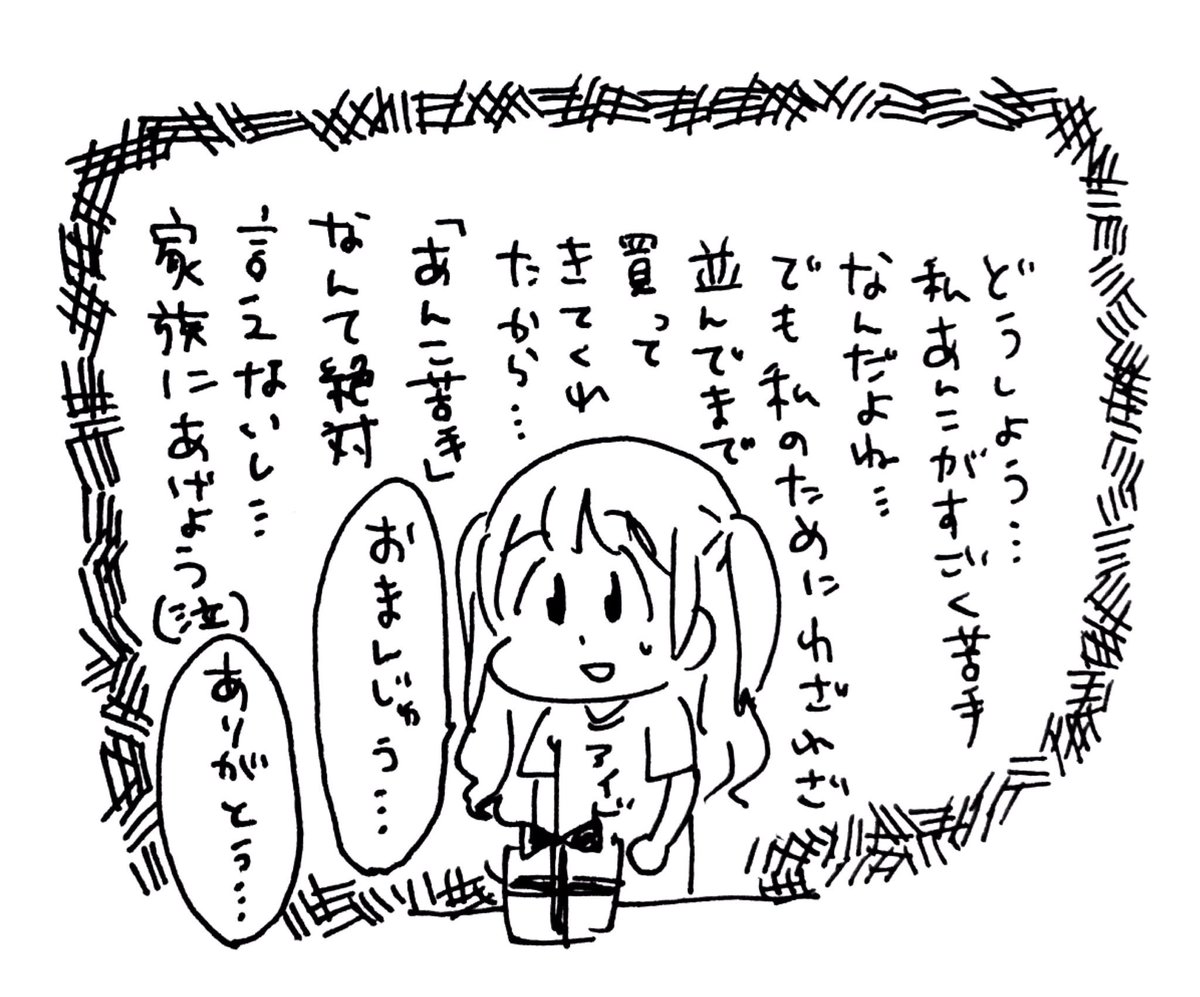 どうしよう…
私あんこがすごく苦手
なんだよね…
でも私のためにわざわざ
並んでまで
買って
きてくれ
たから…
「あんこ苦手」
なんて絶対
言えないし…
家族にあげよう(泣)
おまんじゅう…
ありがとう…
アイビ